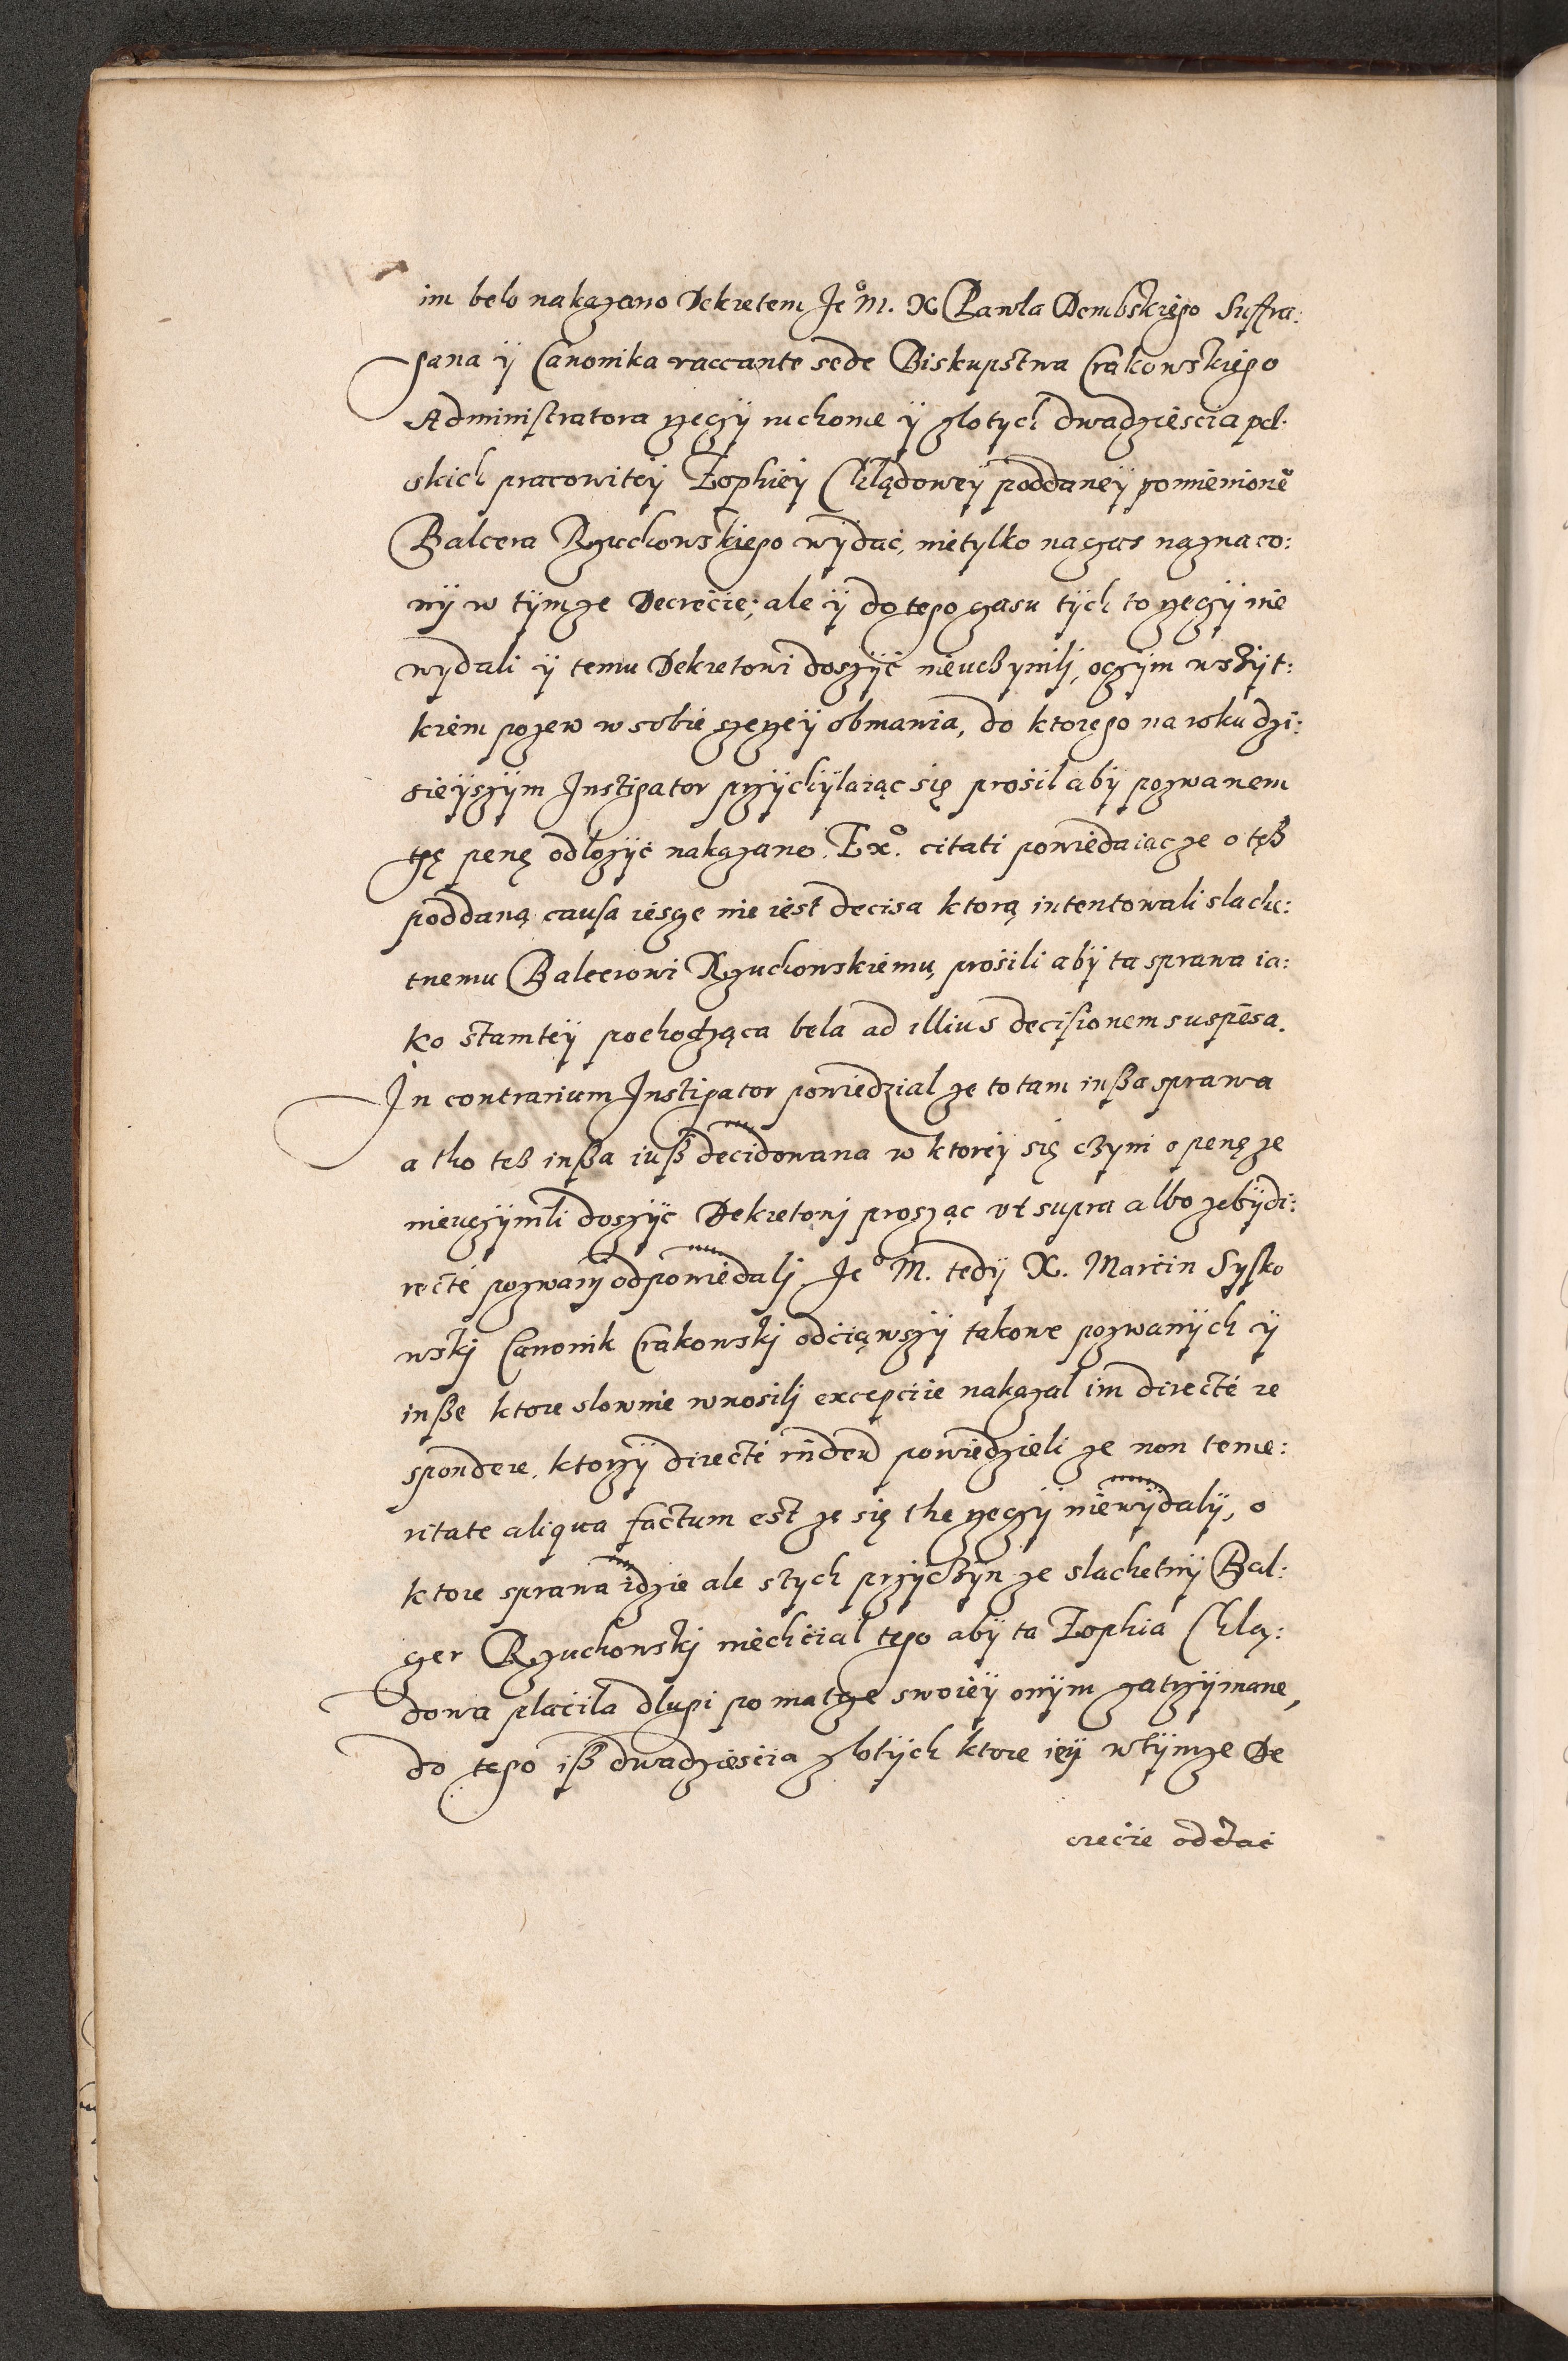 im belo nakazano Dekretem Jeº M. X Pawła Dembskiego Suffra:
gana ÿ Canonika vaccante sede Biskupstwa Crakowskiego
Administratora rzeczÿ ruchome ÿ złotych dwadzieścia pol:
skich pracowiteÿ Zophieÿ Chlądoweÿ poddaneÿ pomienione
Balcera Rzuchowskiego wÿdać, nietylko na czas naznaco:
nÿ w tÿmze Decrecie; ale ÿ do tego czasu tÿch to rzeczÿ nie
wydali ÿ temu Dekretowi doszÿć nieucbynilj, oczÿm wszÿt:
kiem pozew w sobie szerzeÿ obmawia, do ktorego na roku dzi:
sieÿszÿm Instigator przÿchÿlaiąc się prosił abÿ pozwanem
tę penę odłozÿć nakazano. Exº. citati powiedaiąc ze o tęß
poddaną causa iesze nie iest decisa ktorą intentowali slache:
tnemu Balcerowi Rzuchowskiemu, prosili abÿ ta sprawa ia:
ko stamteÿ pochodząca bela ad illius decisionem suspēsa.
In contrarium Instigator powiedzial ze to tam inßa sprawa
a tho teß inßa iuß decidowana w ktoreÿ się czyni o penę ze
nieuczÿnili doszÿć Dekretowj prosząc vt supra albo zebÿ di:
recté pozwanj odpowiedalj. Jeº M. tedÿ X. Marcin Sysko
wskj Canonik Crakowskj odciąwszÿ takowe pozwanÿch ÿ
inße ktore slownie wnosilj excepciie nakazal im directé re
spondere, ktorzÿ directé rñdend powiedzieli ze non teme:
ritate aliqua factum est ze się the rzeczÿ niewÿdalÿ, o
ktore sprawa idzie ale stych przÿczÿn ze slachetnÿ Bal:
cer Rzuchowskj niechcial tego abÿ ta Zophia Chlą:
dowa płacila dlugi po matce swoieÿ onÿm zatrzÿmane,
do tego iß dwadziescia złotÿch ktore ieÿ wtÿmze De
crecie oddać